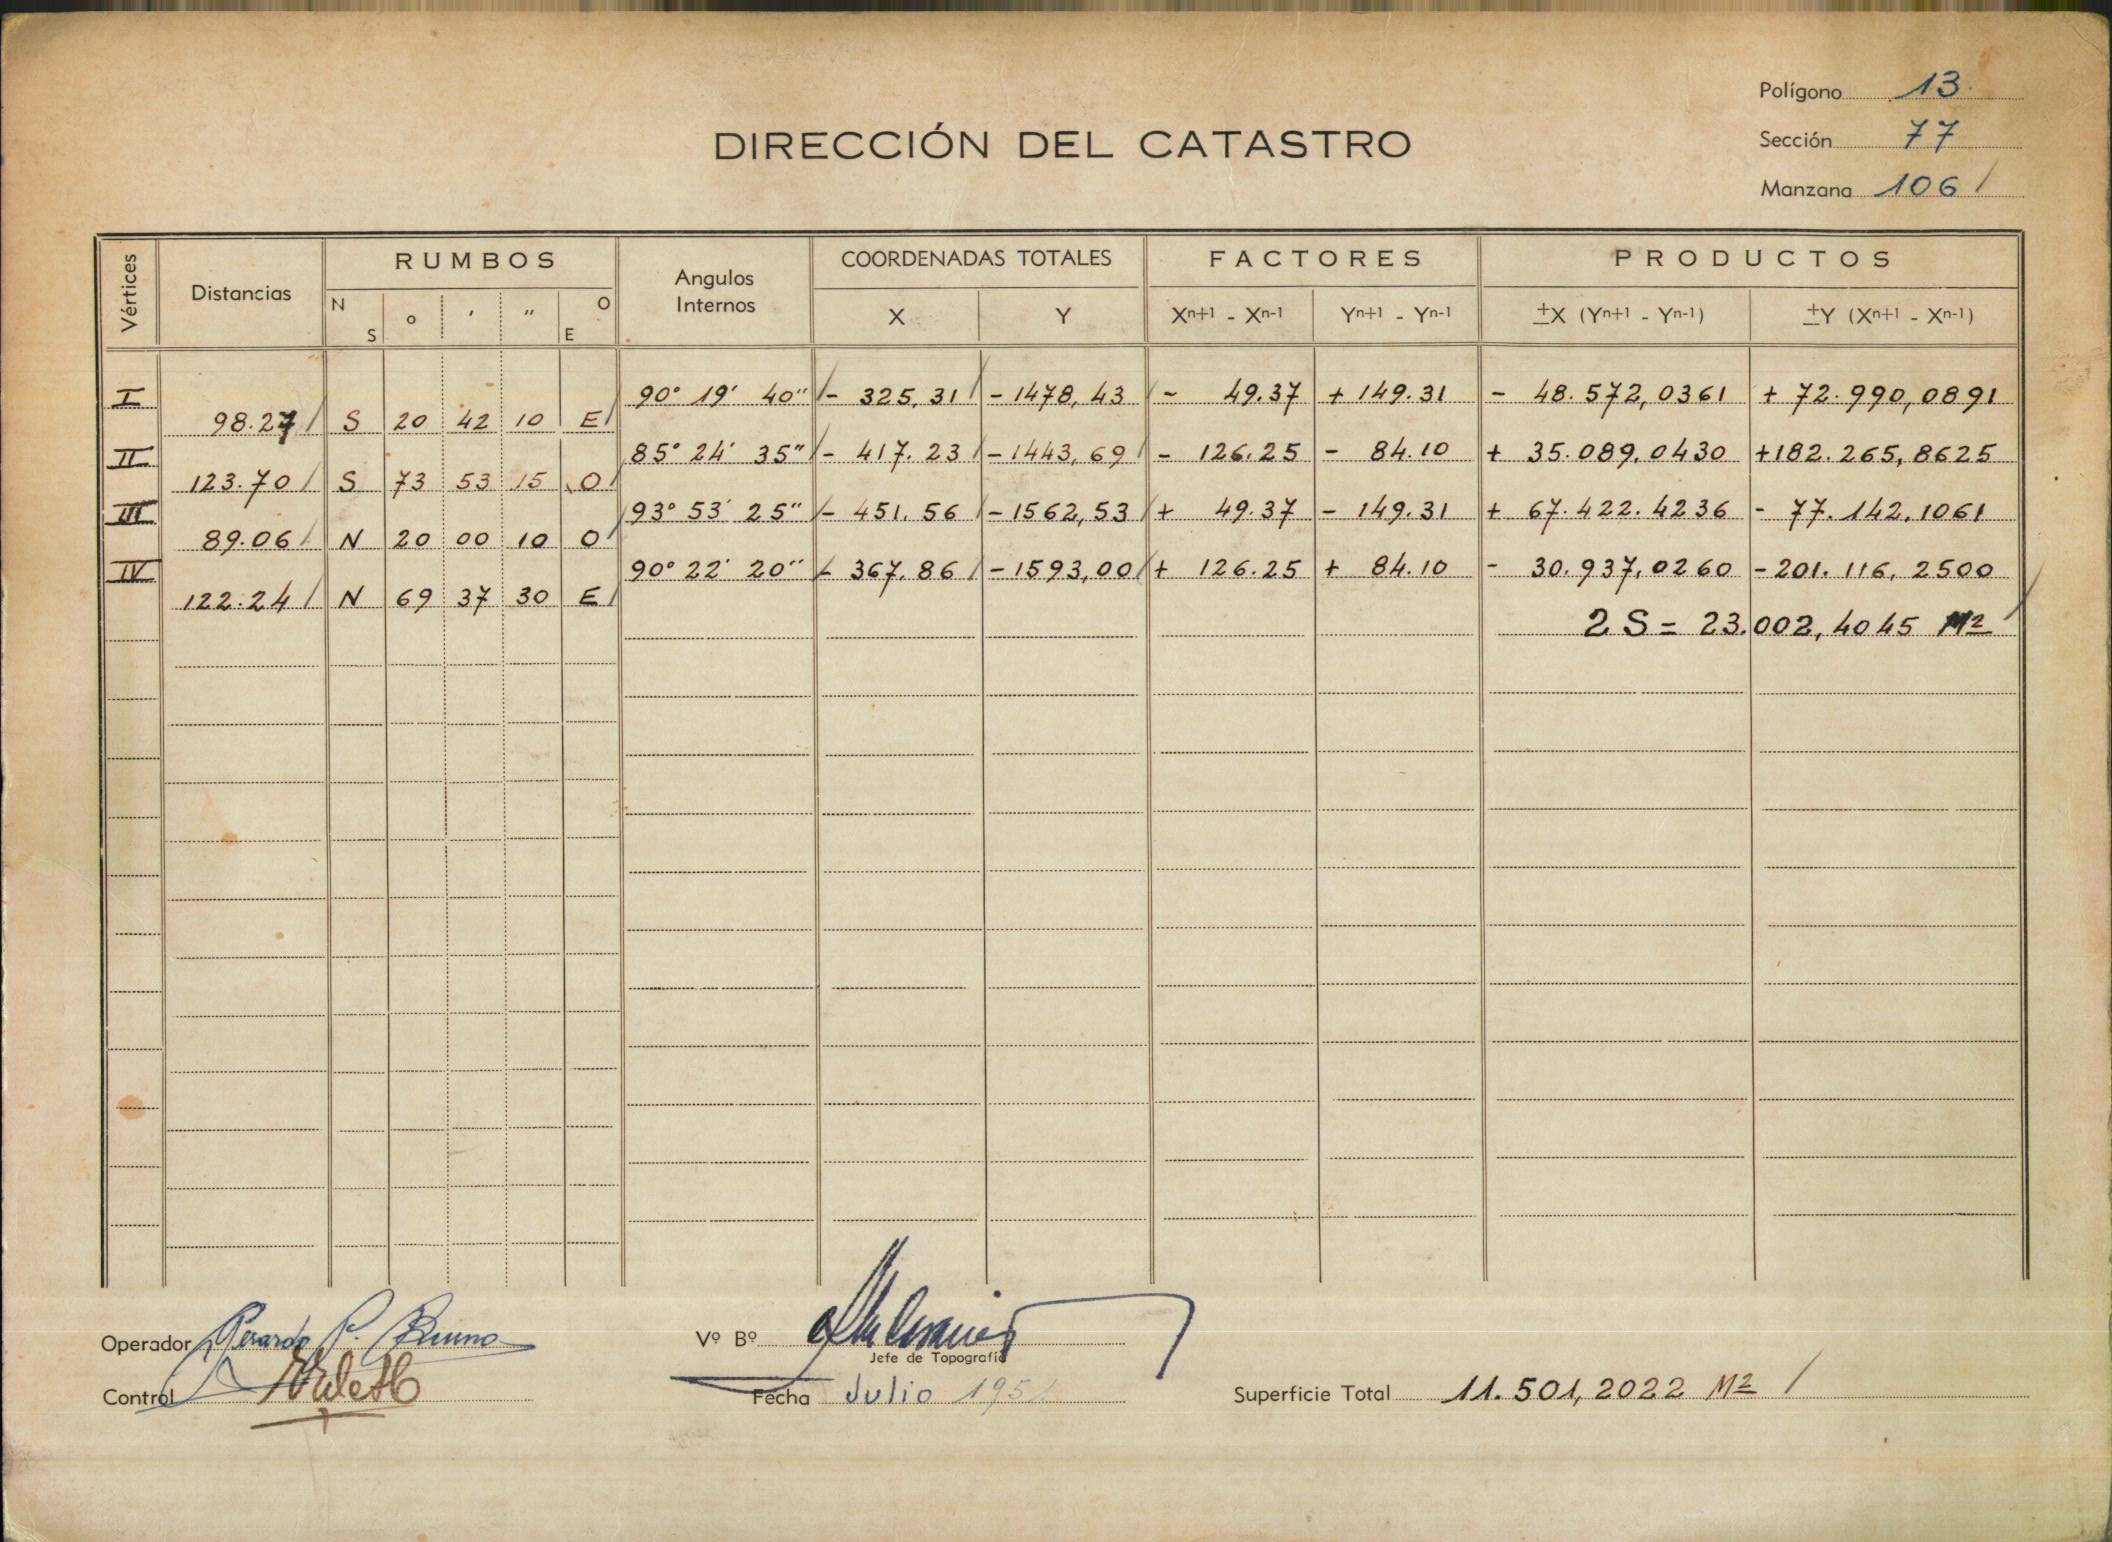 Polígono 13.
DIRECCIÓN DEL CATASTRO
Sección 77
Manzana 106 /
Vértices Distancias RUMBOS Angulos Internos COORDENADAS TOTALES FACTORES PRODUCTOS
N S o ' " O E X Y Xn+1 - Xn-1 Yn+1 - Yn-1 ±X (Yn+1 - Yn-1) ±Y (Xn+1 - Xn-1)
I 90° 19' 40" / - 325,31 / - 1478,43 / - 49.37 + 149.31 - 48.572,0361 + 72.990,0891
98.27 / S 20 42 10 E /
II 85° 24' 35" / - 417.23 / - 1443,69 / - 126.25 - 84.10 + 35.089,0430 + 182.265,8625
123.70 / S 73 53 15 O /
III 93° 53' 25" / - 451.56 / - 1562,53 / + 49.37 - 149.31 + 67.422.4236 - 77.142,1061
89.06 / N 20 00 10 O /
IV 90° 22' 20" / - 367.86 / - 1593,00 / + 126.25 + 84.10 - 30.937,0260 - 201.116,2500 /
122.24 / N 69 37 30 E /
2 S = 23.002,4045 M2
Operador Gerardo P. Bruno
Vº Bº
Jefe de Topografía
Control
Fecha Julio 195
Superficie Total 11.501,2022 M2 /